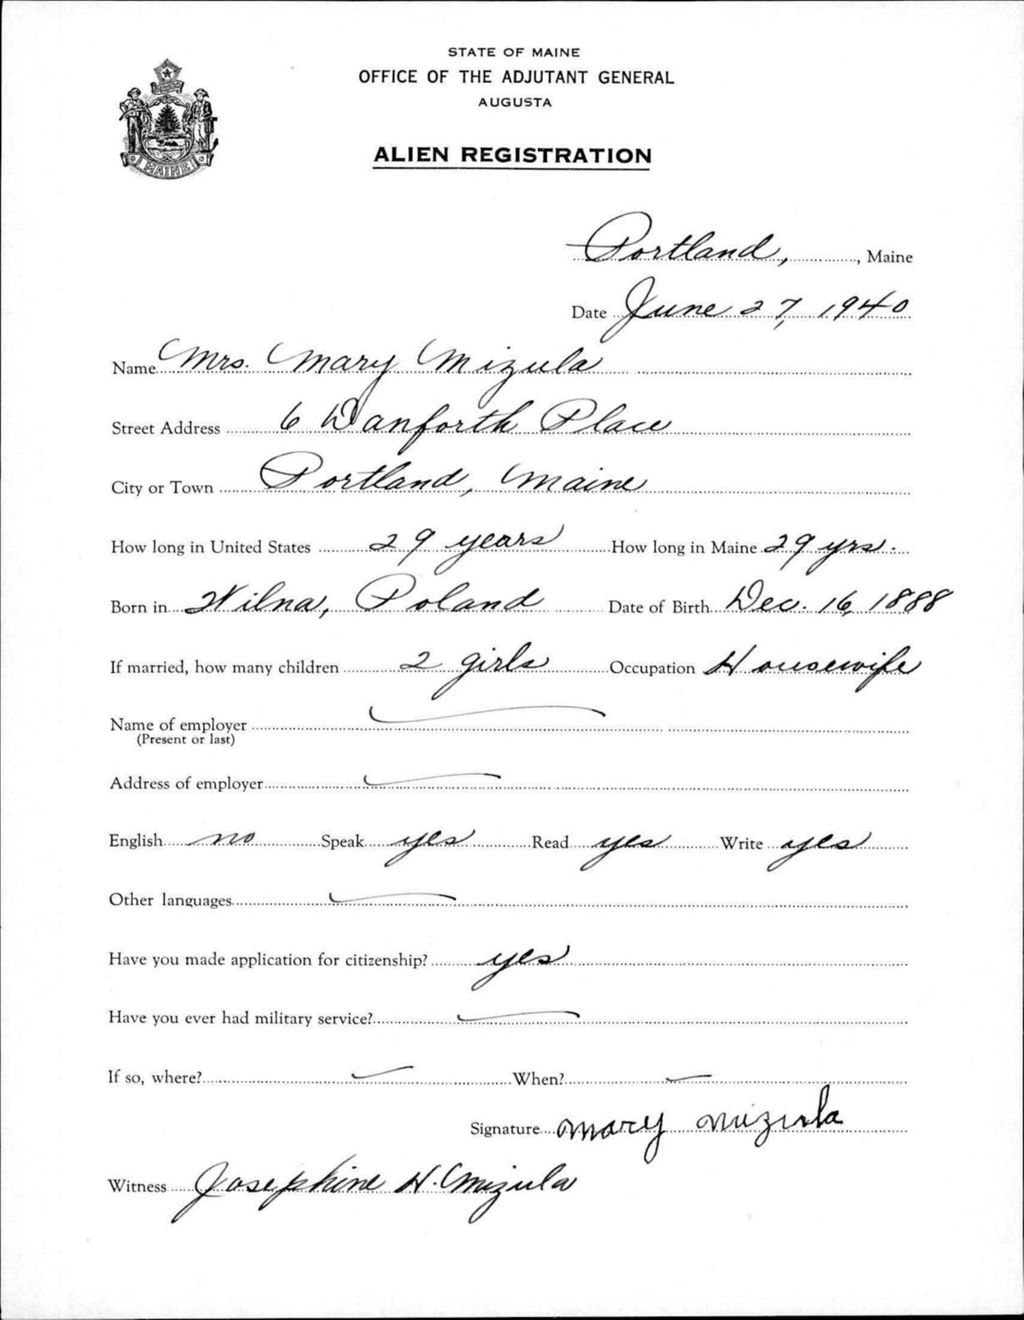 STATE OF MAINE
OFFICE OF THE ADJUTANT GENERAL
AUGUSTA
ALIEN REGISTRATION
MAINE
Portland, , Maine
Date June 27, 1940
Name Mrs. Mary Mizula
Street Address 6 Danforth Place
City or Town Portland, Maine
How long in United States 29 years How long in Maine 29 yrs.
Born in Wilna, Poland Date of Birth Dec. 16, 1888
If married, how many children 2 girls Occupation Housewife
Name of employer
(Present or last)
Address of employer
English no Speak yes Read yes Write yes
Other languages
Have you made application for citizenship? yes
Have you ever had military service?
If so, where? When?
Signature Mary Mizula
Witness Josephine H. Mizula